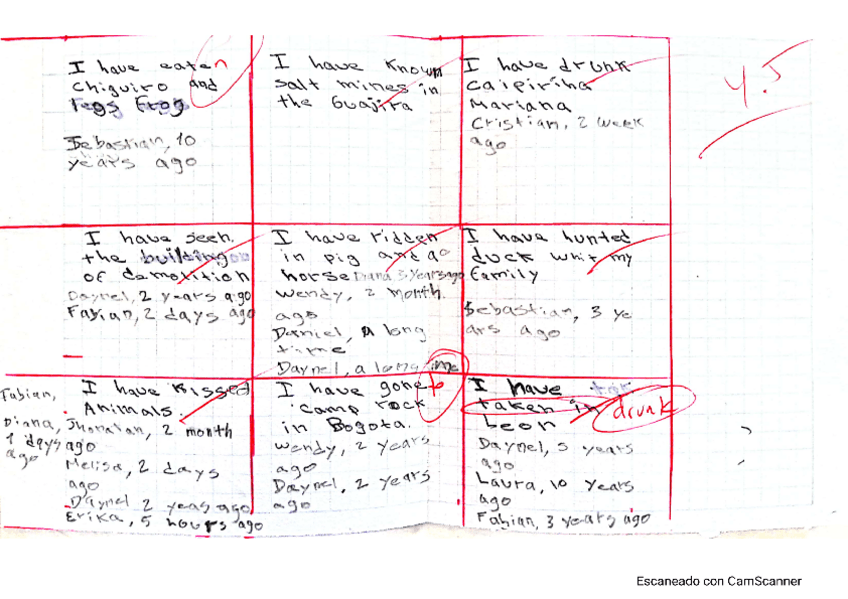 I have eaten
chiguiro and
legs frog
Sebastian, 10
years ago
I have known
salt mines in
the Guajira
I have drunk
caipiriña
Mariana
Cristian, 2 week
ago
4.5
I have seen
the building
of demoxition
Daynel, 2 years ago
Fabian, 2 days ago
I have ridden
in pig and a
horse Diana 3 years ago
Wendy, 2 month
ago
Daniel, A long
time
Daynel, a long time
I have hunted
duck whit my
family
Sebastian, 3 ye
ars ago
I have kissed
Animals.
Fabian,
Diana, Jhonatan, 2 month
1 days ago
ago
Melisa, 2 days
ago
Daynel 2 yeas ago
Erika, 5 hours ago
I have gone to
camp rock
in Bogota.
Wendy, 2 years
ago
Daynel, 2 years
ago
I have
taken in drunk
beon
Daynel, 5 years
ago
Laura, 10 years
ago
Fabian, 3 years ago
Escaneado con CamScanner